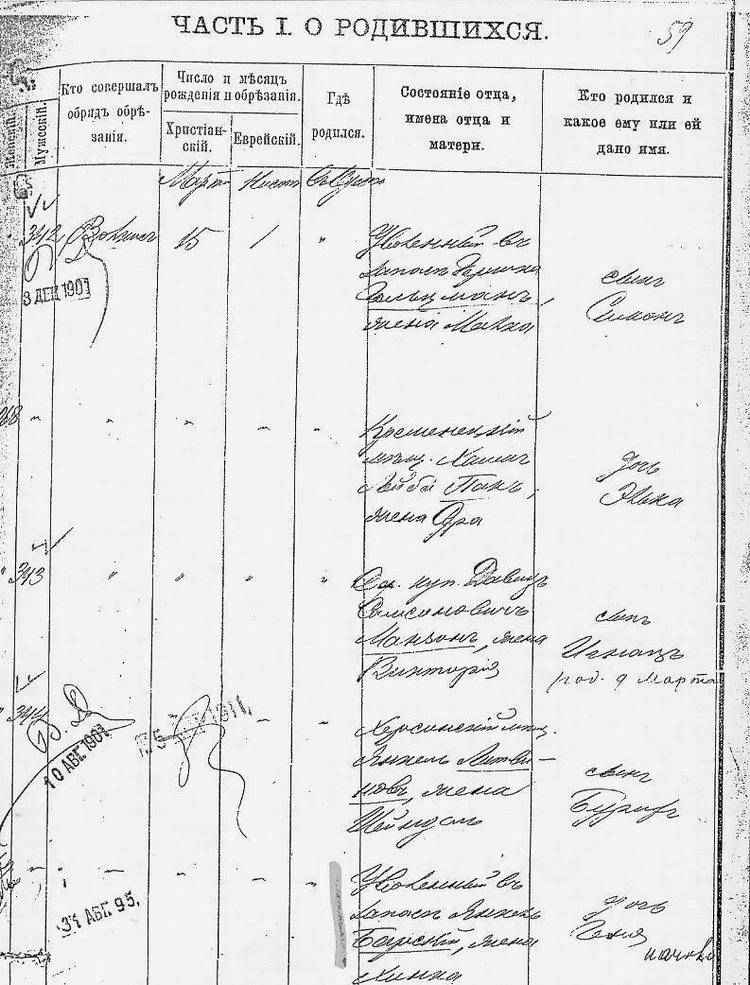 ЧАСТЬ I. О РОДИВШИХСЯ.
59
Женскій.
Мужескій.
Кто совершалъ
обрядъ обрѣ-
занія.
Число и мѣсяцъ
рожденія и обрѣзанія.
Христіан-
скій.
Еврейскій.
Гдѣ
родился.
Состояніе отца,
имена отца и
матери.
Кто родился и
какое ему или ей
дано имя.
Мартъ
342
15
1
"
Уволенный въ
запасъ
Гольцманъ,
жена Малка
сынъ
Симонъ
3 ДЕК 1901
Кременецкій
мѣщ.
Лейба Панъ,
жена Сура
дочь
Элька
343
"
"
"
"
Од. куп. Давидъ
Самсоновичъ
Манзонъ, жена
Викторія
сынъ
Игнацъ
род. 9 Марта
344
10 АВГ 1901
Херсонскій мѣщ.
Янкель Литви-
новъ, жена
Шейндля
сынъ
31 АВГ. 95.
Уволенный въ
запасъ Янкель
Барскій, жена
Хинка
дочь
Геня